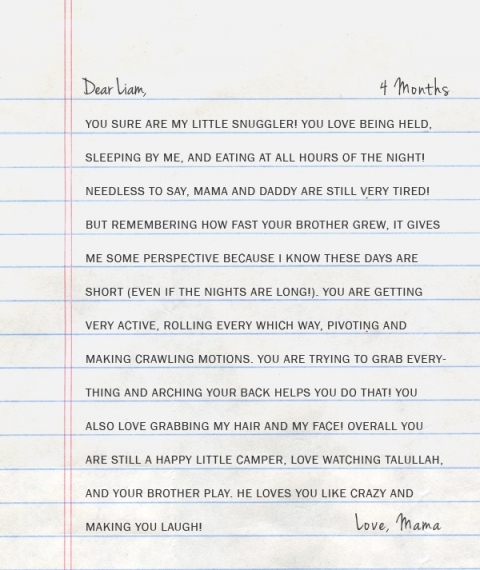 Dear Liam, 4 Months
YOU SURE ARE MY LITTLE SNUGGLER! YOU LOVE BEING HELD,
SLEEPING BY ME, AND EATING AT ALL HOURS OF THE NIGHT!
NEEDLESS TO SAY, MAMA AND DADDY ARE STILL VERY TIRED!
BUT REMEMBERING HOW FAST YOUR BROTHER GREW, IT GIVES
ME SOME PERSPECTIVE BECAUSE I KNOW THESE DAYS ARE
SHORT (EVEN IF THE NIGHTS ARE LONG!). YOU ARE GETTING
VERY ACTIVE, ROLLING EVERY WHICH WAY, PIVOTING AND
MAKING CRAWLING MOTIONS. YOU ARE TRYING TO GRAB EVERY-
THING AND ARCHING YOUR BACK HELPS YOU DO THAT! YOU
ALSO LOVE GRABBING MY HAIR AND MY FACE! OVERALL YOU
ARE STILL A HAPPY LITTLE CAMPER, LOVE WATCHING TALULLAH,
AND YOUR BROTHER PLAY. HE LOVES YOU LIKE CRAZY AND
MAKING YOU LAUGH! Love, Mama